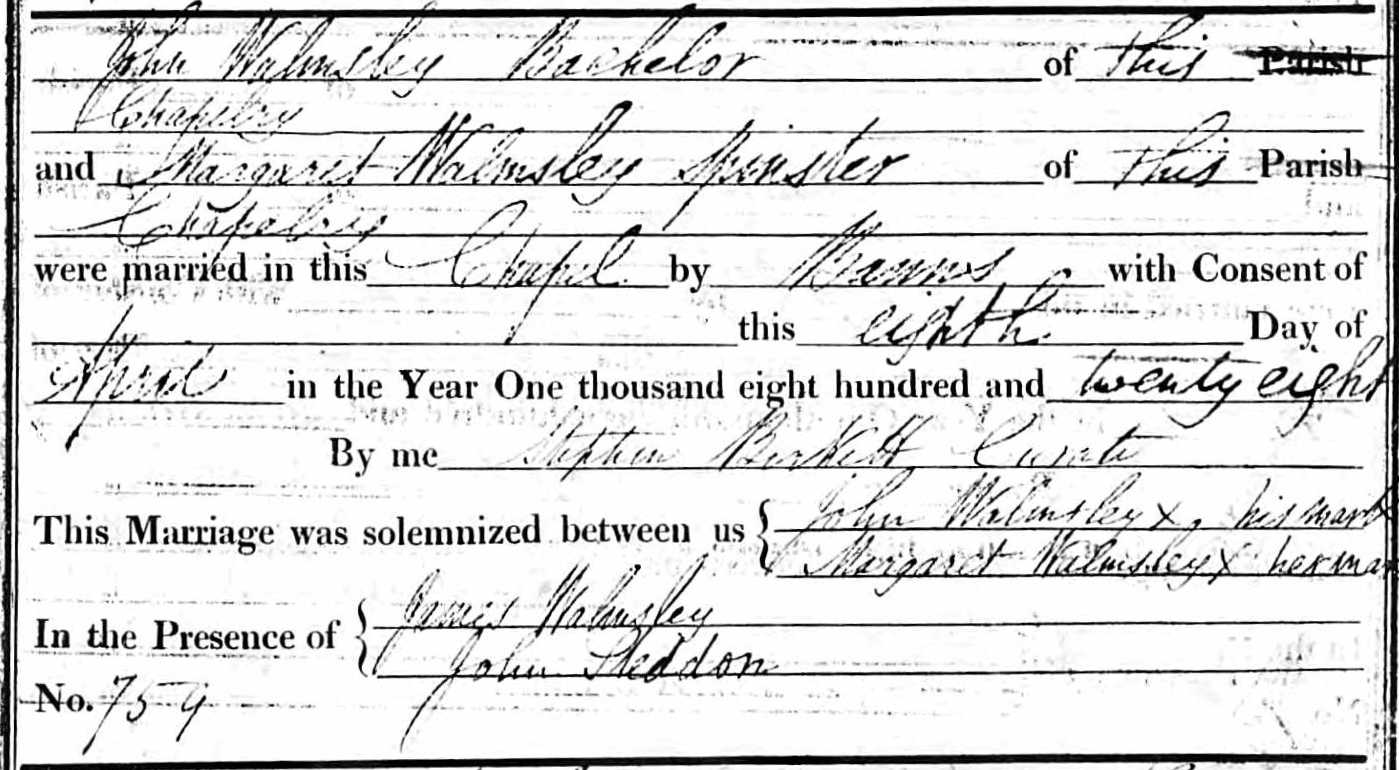 John Walmsley Bachelor of this Parish
Chapelry
and Margaret Walmsley Spinster of this Parish
Chapelry
were married in this Chapel by Banns with Consent of
this eighth Day of
April in the Year One thousand eight hundred and twenty eight
By me Stephen Birkett Curate
This Marriage was solemnized between us { John Walmsley x his mark
Margaret Walmsley x her mar
In the Presence of { James Walmsley
John Seddon
No. 759